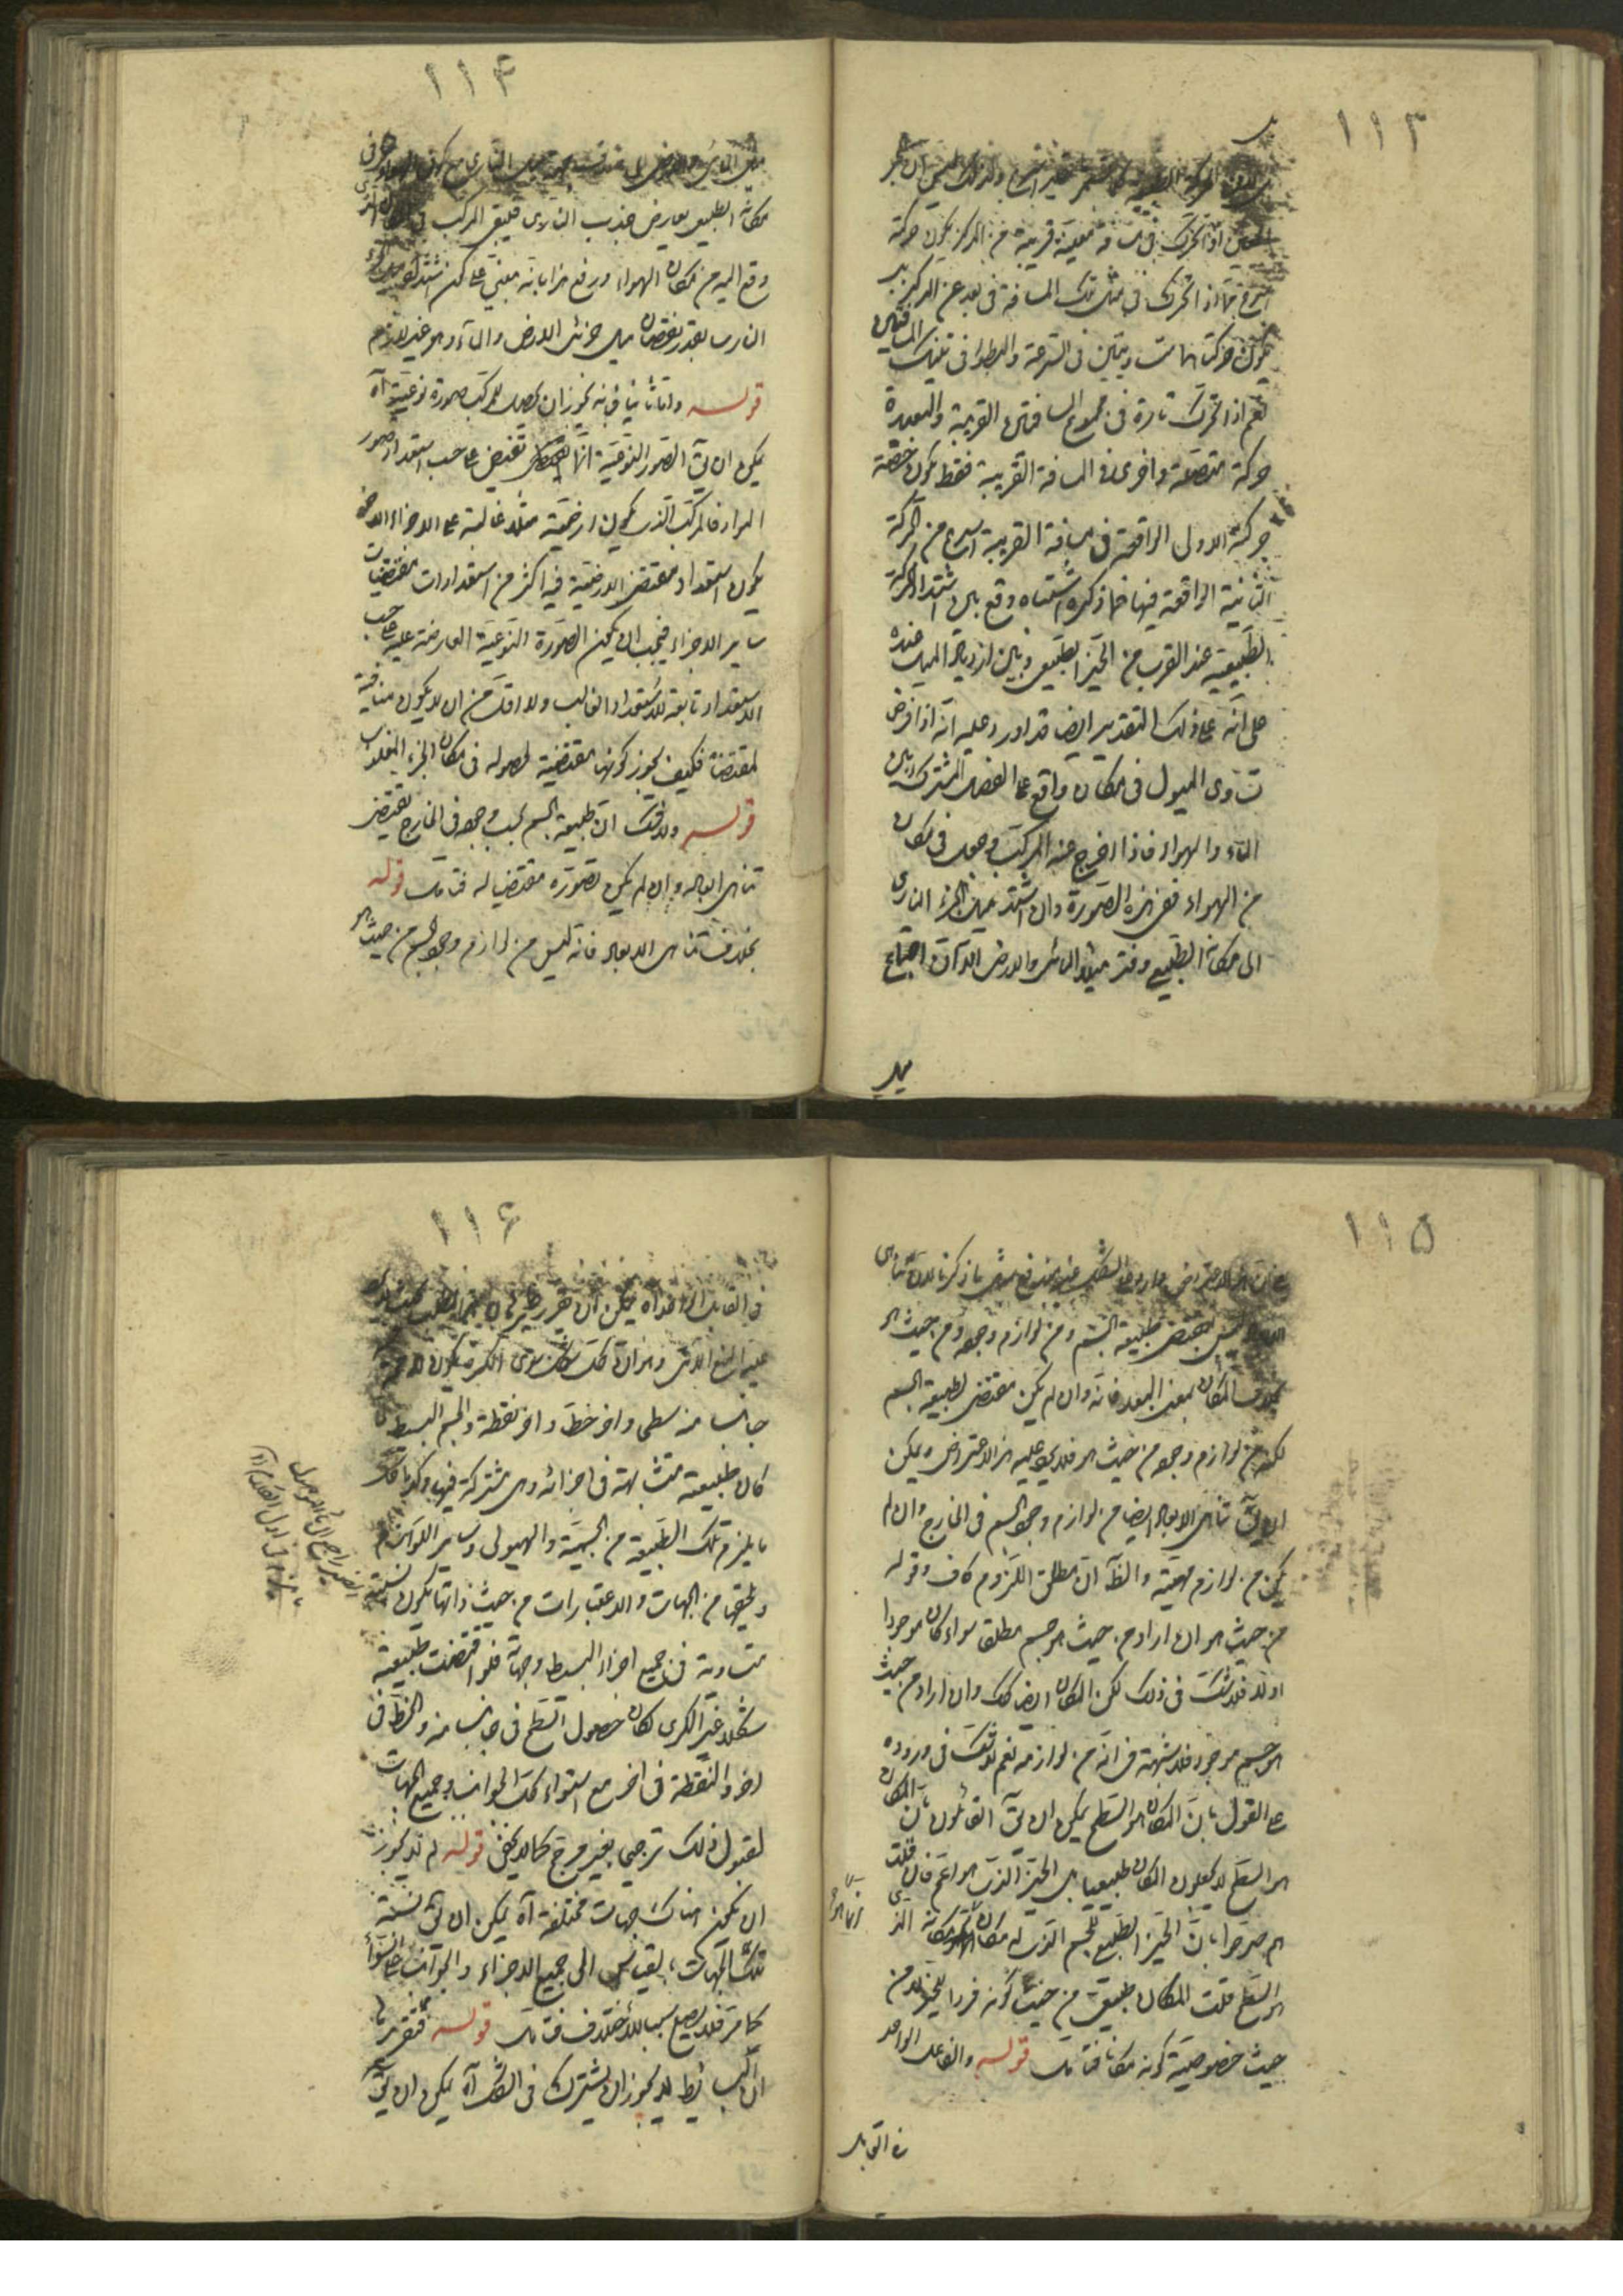 ١١٣
اذا تحرك فى مسافة معينة قريبة من المركز يكون حركته
اسرع منها اذا تحرك فى مثل تلك المسافة فى بعد عن المركز بل
يكون حركتاهما متساويتين فى السرعة والبطؤ فى تينك المسافتين
نعم اذا تحرك تارة فى مجموع المسافتين القريبة والبعيدة
حركة متصلة واخرى فى المسافة القريبة فقط يكون حصة
حركة الاولى الواقعة فى مسافة القريبة اسرع من الحركة
الثانية الواقعة فيها فما ذكره اشتباه وقع بين اشتداد الحركة
الطبيعية عند القرب من الحيز الطبيعى وبين ازدياد الميل عنده
على انه على ذلك التقدير ايضا قد اورد عليه انه اذا فرض
تساوى الميول فى مكان واقع على الفصل المشترك بين
الماء والهواء فاذا اخرج عنه المركب وجعل فى مكان
من الهواء ففى هذه الصورة وان اشتد ميل الجزء النارى
الى مكانه الطبيعى وفتر ميلا المائى والارضى الا ان اجتماع
ميل
١١٤
مكانه الطبيعى يعارض جذب النارى فليبق المركب فى
وقع اليه من مكان الهواء ودفع هذا بانه مبنى على كون اشتداد ميل
النارى بقدر نقصان ميل جزئى الارض والماء وهو غير لازم
قوله واما ثانيا فانه يجوز ان يحصل للمركب صورة نوعية آه
يمكن ان يق الصور النوعية انما تفيض على حسب استعداد صور
المواد فالمركب الذى يكون ارضيته مثلا غالبة على الاجزاء الاخر
يكون استعداد مقتضى الارضية فيه اكثر من استعدادات مقتضيات
ساير الاجزاء فيجب ان يكون الصورة النوعية العارضة عليه على حسب
الاستعداد تابعة للاستعداد الغالب ولا اقل من ان لا يكون منافية
لمقتضاه فكيف يجوز كونها مقتضية لحصوله فى مكان الجزء المغلوب
قوله ولا شك ان طبيعة الجسم بحسب وجوده فى الخارج يقتضى
تناهى ابعاده وان لم يكن تصوره مقتضيا له فتامل قوله
بخلاف تناهى الابعاد فانه ليس من لوازم وجود الجسم من حيث هو
١١٥
ليس بمقتضى طبيعة الجسم ومن لوازم وجوده من حيث هو
بخلاف المكان بمعنى البعد فانه وان لم يكن مقتضى لطبيعة الجسم
لكنه من لوازم وجوده من حيث هو فلا يرد عليه هذا الاعتراض ويمكن
ان يق تناهى الابعاد ايضا من لوازم وجود الجسم فى الخارج وان لم
يكن من لوازم مهيته والظ ان مطلق اللزوم كاف وقوله
من حيث هو ان اراد من حيث هو جسم مطلقا سواء كان موجودا
او لا فلا شك فى ذلك لكن المكان ايضا كك وان اراد من حيث
هو جسم موجود فلا شبهة فى انه من لوازمه نعم لا شك فى وروده
على القول بان المكان هو السطح يمكن ان يق القائلون بان المكان
هو السطح لا يجعلون المكان طبيعيا بل الحيز الذى هو اعم فان قلت
هم صرحوا بان الحيز الطبيعى للجسم الذى له مكان مكانه الذى
هو السطح قلت المكان طبيعى من حيث كونه فردا للحيز لا من
حيث خصوصية كونه مكانا فتامل قوله والفاعل الواحد
فى القابل
١١٦
جانب منه سطح واخر خط واخر نقطة والجسم البسيط
كان طبيعته متشابهة فى اجزائه وهى مشتركة فيها وكذا كل
ما يلزم تلك الطبيعة من الجسمية والهيولى وساير اللوازم
ويلحقها من الجهات والاعتبارات من حيث ذاتها يكون نسبته
متساوية فى جميع اجزاء البسيط وجهاته فلو اقتضت طبيعته
شكلا غير الكرى لكان حصول السطح فى جانب منه والخط فى
اخر والنقطة فى اخر مع استواء كل الجوانب وجميع الجهات
لقبول ذلك ترجيحا بغير مرجح كما لا يخفى قوله لم لا يجوز
ان يكون هناك جهات مختلفة آه يمكن ان يق نسبة
تلك الجهات بالقياس الى جميع الاجزاء والجوانب على السواء
كما مر فلا يصلح سببا للاختلاف فتامل قوله
ان البسائط لا يجوز ان يشترك فى الشكل آه يمكن ان يق
الضمير راجع الى ما الموصول